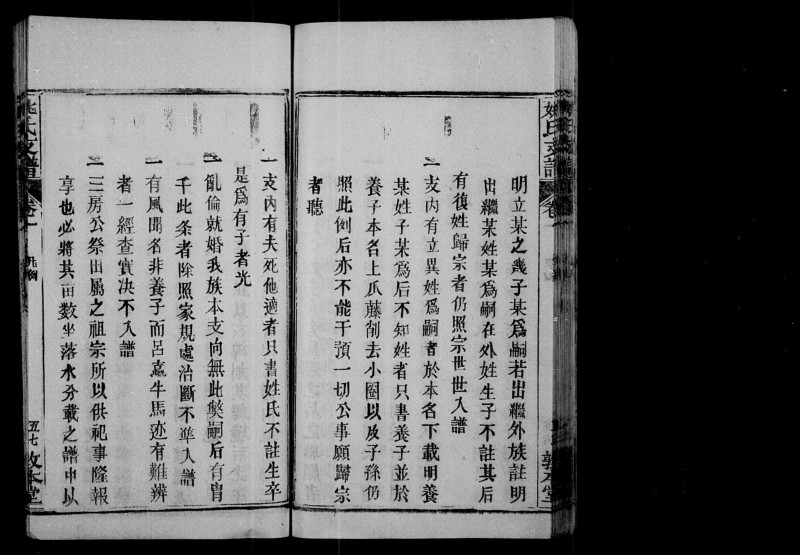 明立某之幾子某爲嗣若出繼外族註明
出繼某姓某爲嗣在外姓生子不註其后
有復姓歸宗者仍照宗世世入譜
一支內有立異姓爲嗣者於本名下載明養
某姓子某爲后不知姓者只書養子並於
養子本名上瓜藤削去小圈以及子孫仍
照此例后亦不能干預一切公事願歸宗
者聽
一支內有夫死他適者只書姓氏不註生卒
是爲有子者光
一亂倫就婚我族本支向無此獘嗣后有冐
干此条者除照家規處治斷不準入譜
一有風聞名非養子而呂嬴牛馬迹有難辨
者一經查實决不入譜
一三房公祭出屬之祖宗所以供祀事隆報
享也必將其亩数坐落水分載之譜中以
姚氏支譜
卷
五七
敦本堂